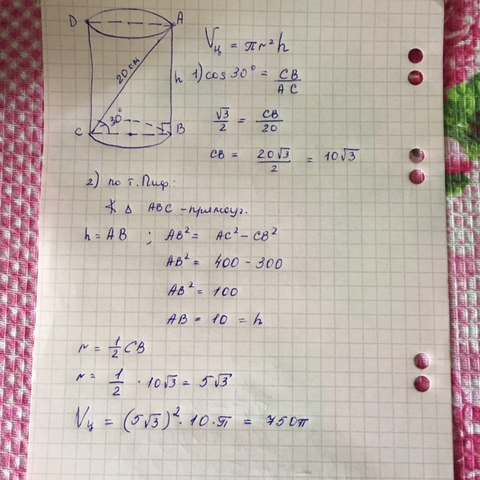 D A
20 см
h
30°
C B
Vц = πr²h
1) cos 30° = CB/AC
√3/2 = CB/20
CB = 20√3/2 = 10√3
2) по т. Пиф:
△ ABC - прямоуг.
h = AB ; AB² = AC² - CB²
AB² = 400 - 300
AB² = 100
AB = 10 = h
r = 1/2 CB
r = 1/2 · 10√3 = 5√3
Vц = (5√3)² · 10 · π = 750π